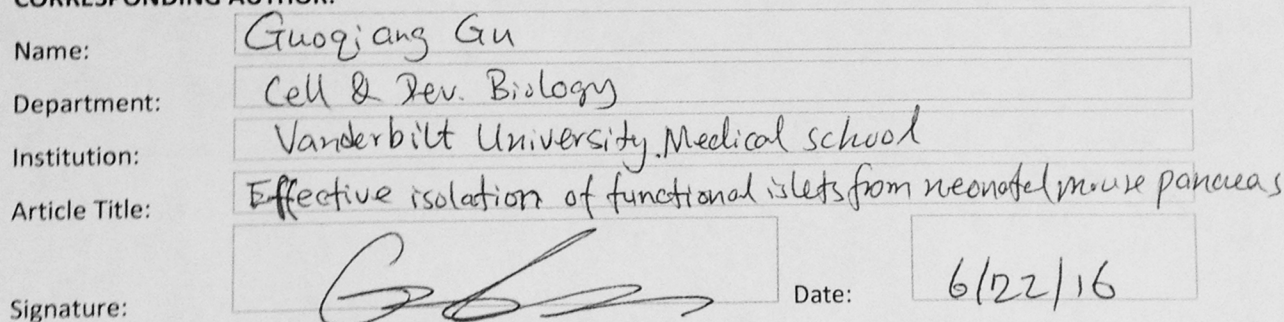 CORRESPONDING AUTHOR:
Name: Guoqiang Gu
Department: Cell & Dev. Biology
Institution: Vanderbilt University. Medical school
Article Title: Effective isolation of functional islets from neonatal mouse pancreas
Signature: Date: 6/22/16